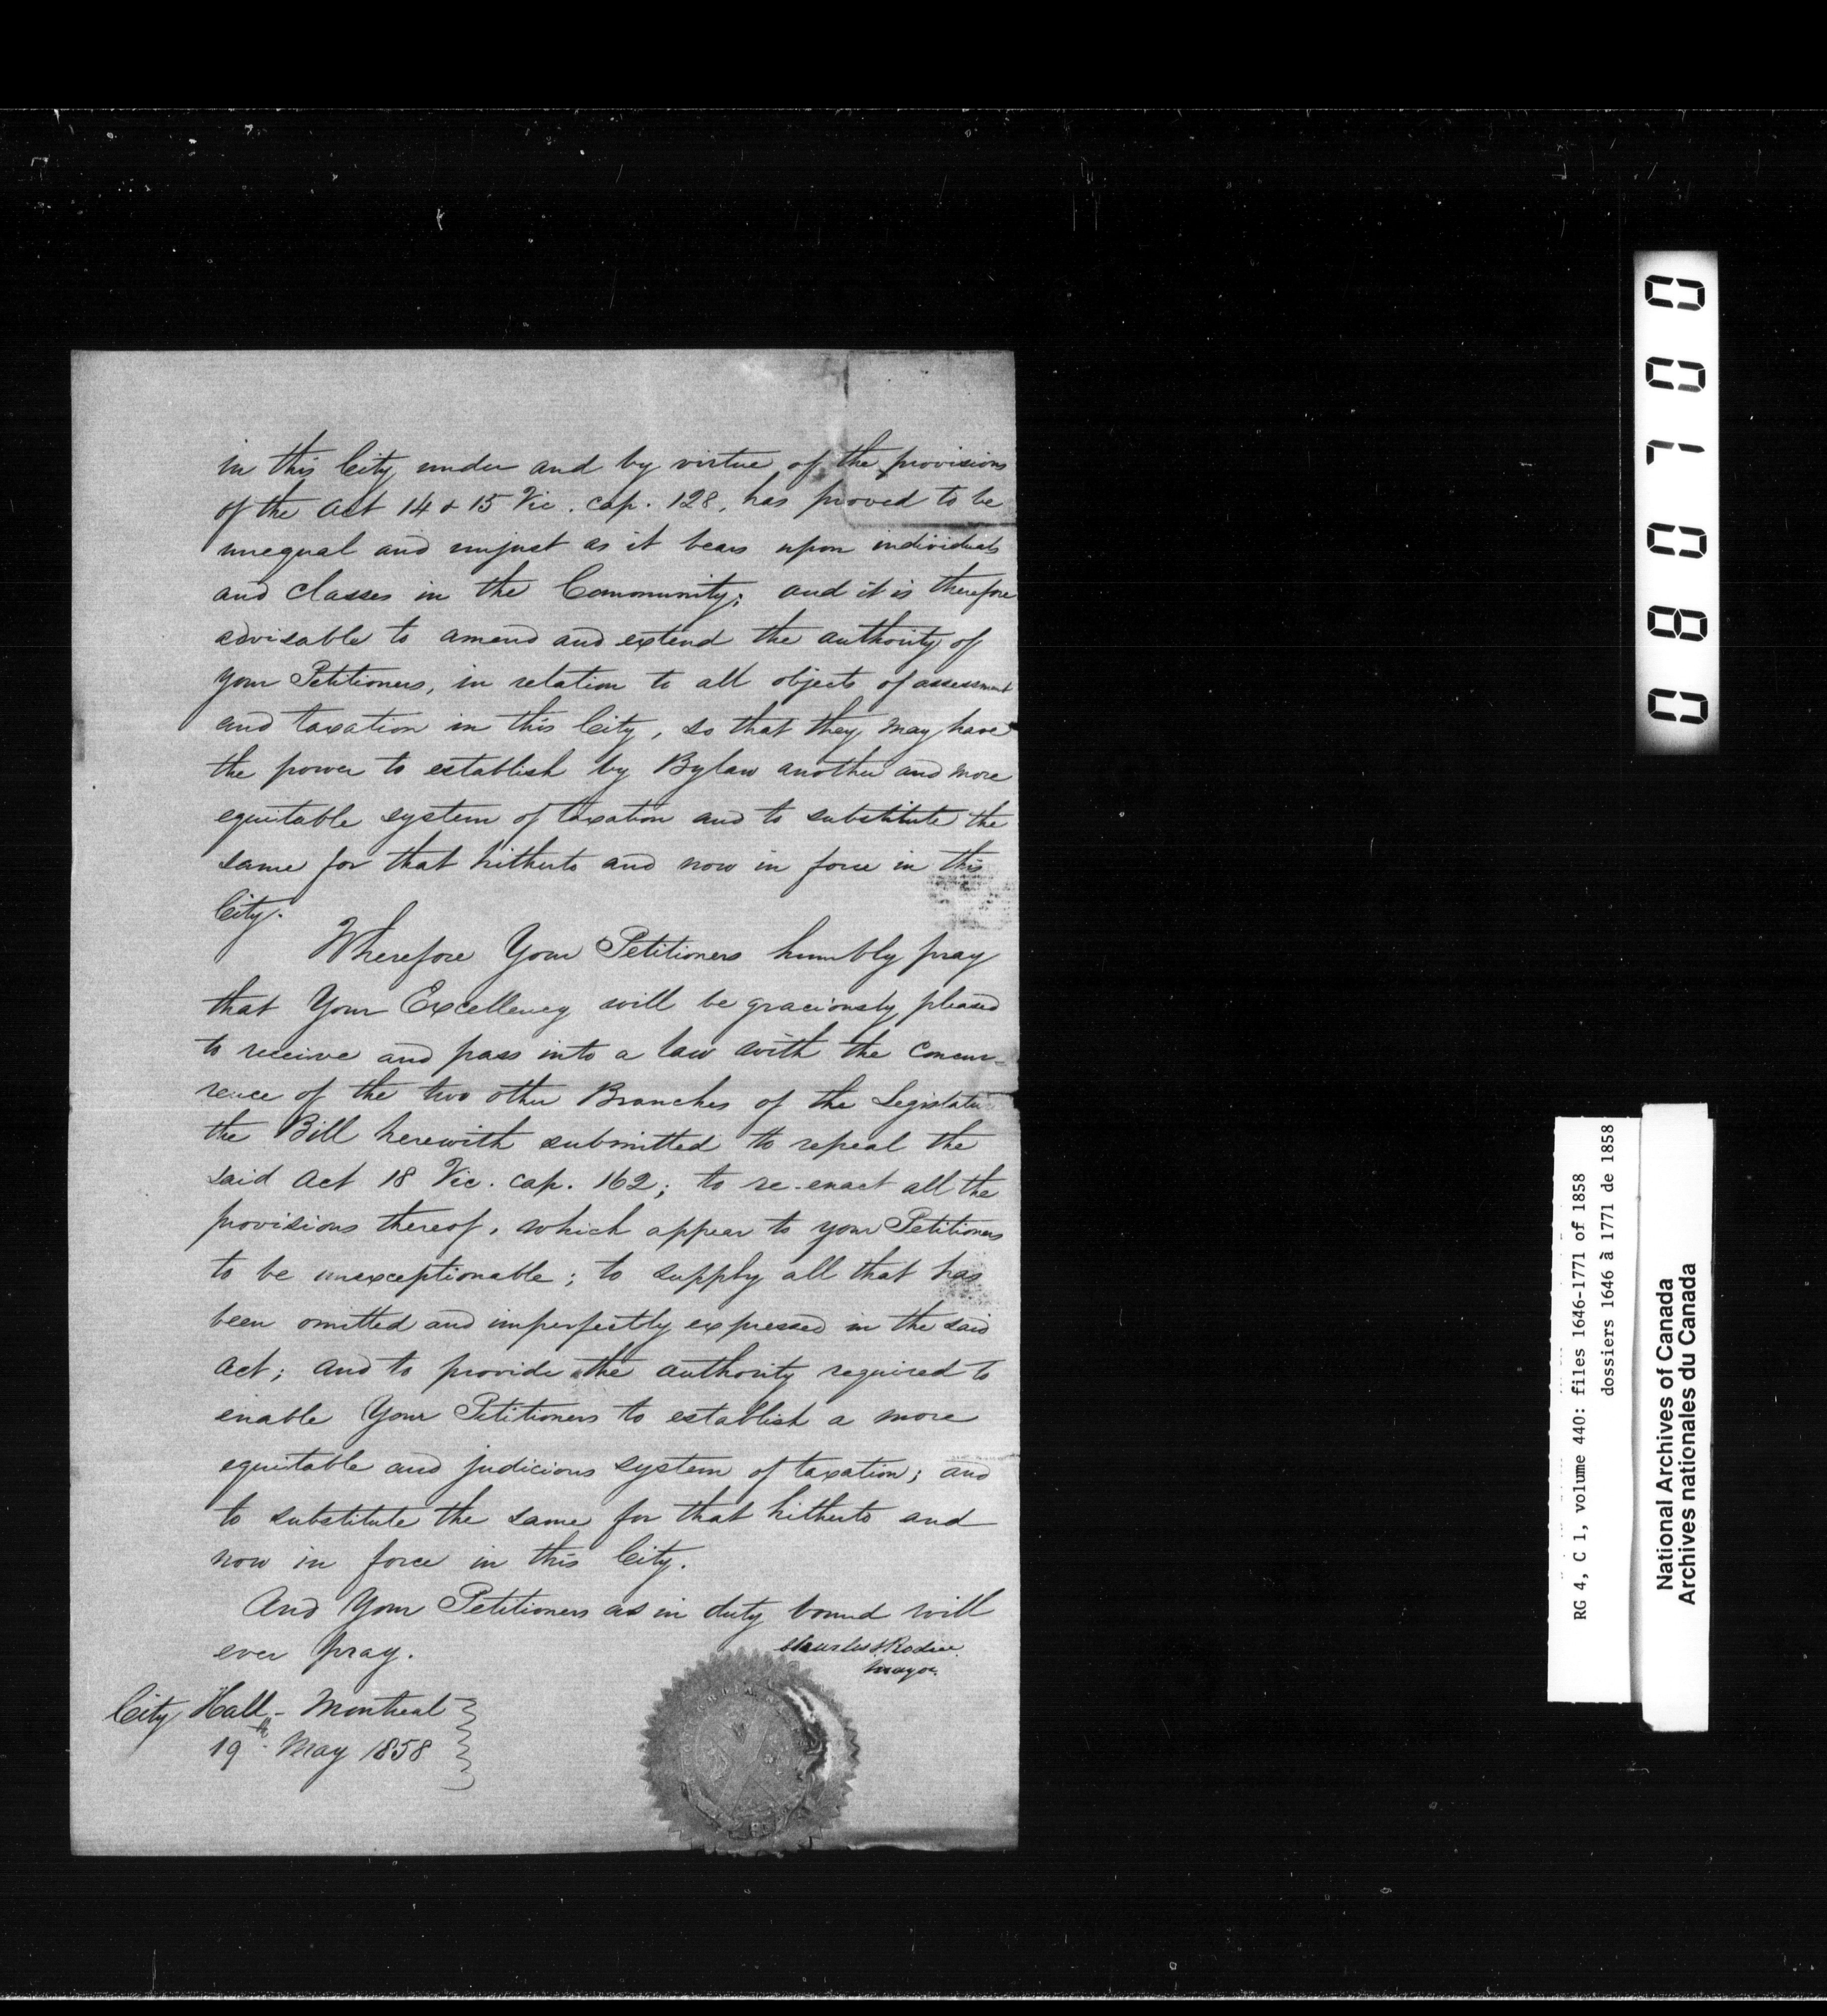 in this City, under and by virtue, of the provisions
of the Act 14 & 15 Vic. cap. 128, has proved to be
unequal and unjust as it bears upon individuals
and classes in the Community; and it is therefore
advisable to amend and extend the authority of
your Petitioners, in relation to all objects of assessment
and taxation in this City, so that they may have
the power to establish by Bylaw another and more
equitable system of taxation and to substitute the
same for that hitherto and now in force in this
City.
Wherefore Your Petitioners humbly pray
that Your Excellency will be graciously pleased
to receive and pass into a law with the concur-
rence of the two other Branches of the Legislature
the Bill herewith submitted to repeal the
said Act 18 Vic. cap. 162; to re-enact all the
provisions thereof, which appear to your Petitioners
to be unexceptionable; to supply all that has
been omitted and imperfectly expressed in the said
Act; and to provide the authority required to
enable Your Petitioners to establish a more
equitable and judicious system of taxation; and
to substitute the same for that hitherto and
now in force in this City.
And Your Petitioners as in duty bound will
ever pray.
Rodier
Mayor
City Hall - Montreal
19th May 1858
080700
RG 4, C 1, volume 440: files 1646-1771 of 1858
dossiers 1646 à 1771 de 1858
National Archives of Canada
Archives nationales du Canada